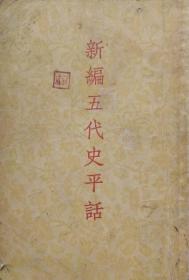 新編五代史平話